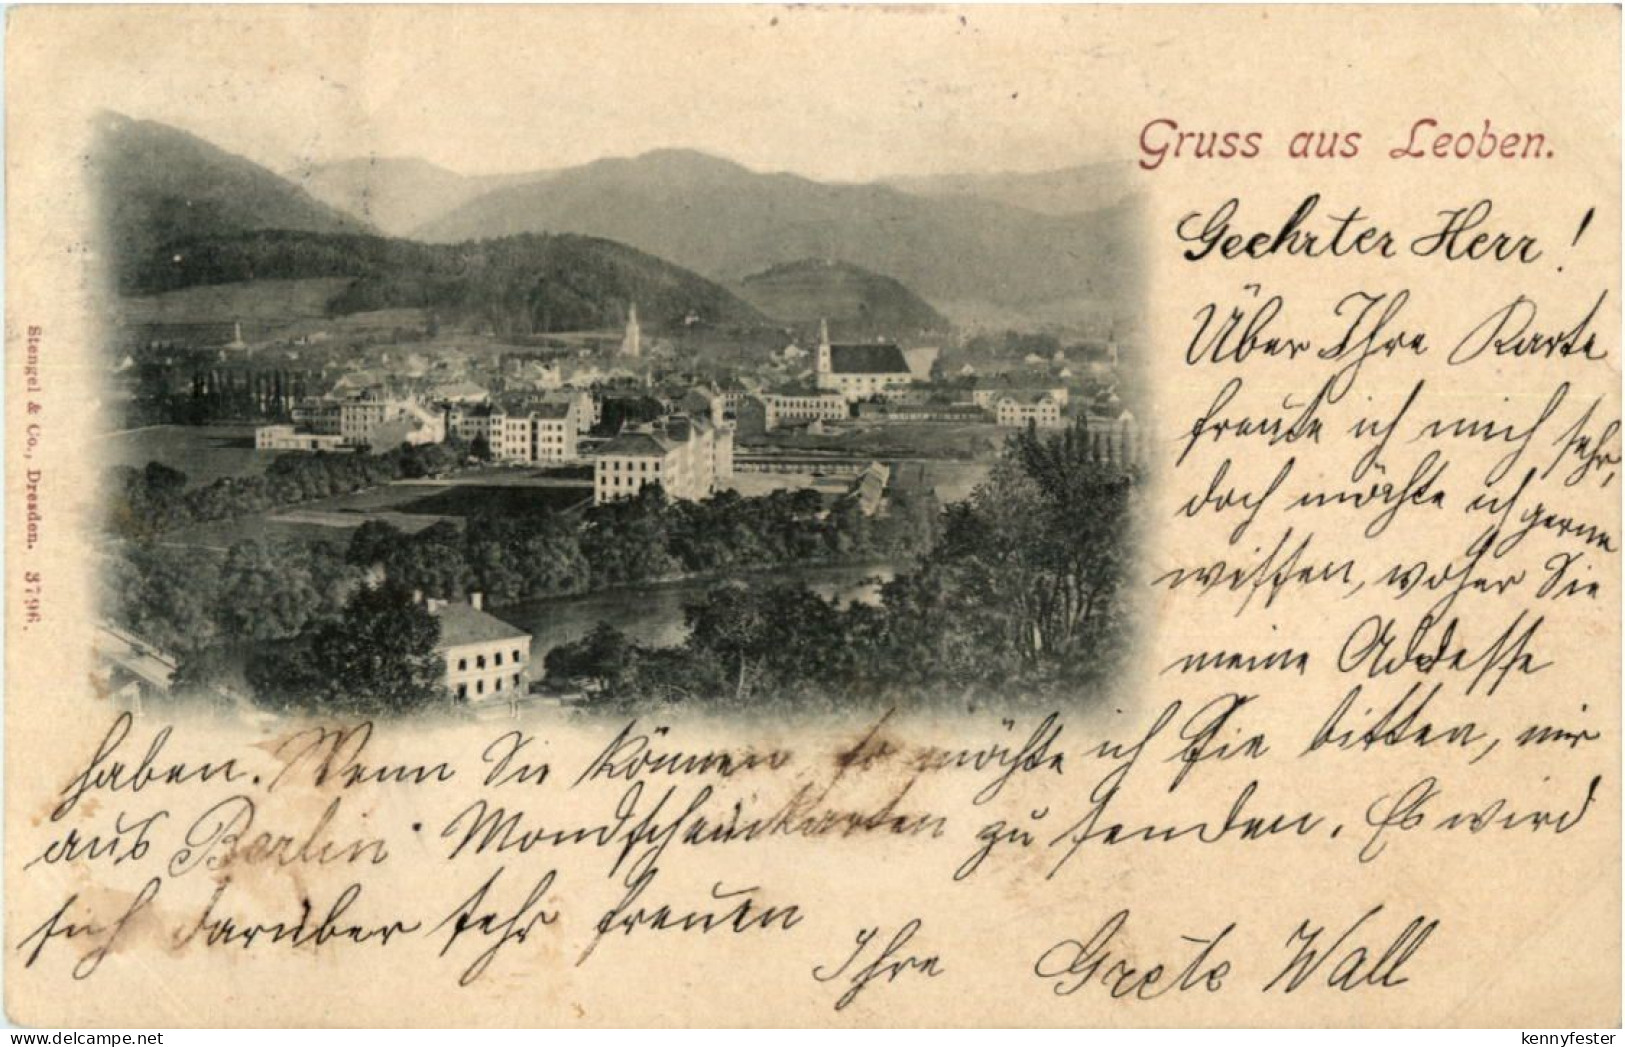 Gruss aus Leoben.
Geehrter Herr!
Über Ihre Karte
freute ich mich sehr,
doch möchte ich gerne
wissen, woher Sie
meine Addesse
haben. Wenn Sie können so möchte ich Sie bitten, mir
aus Berlin Mondscheinkarten zu senden. Es wird
sich darüber sehr freuen
Ihre Grete Wall
Stengel & Co., Dresden. 3796.
kennyfester